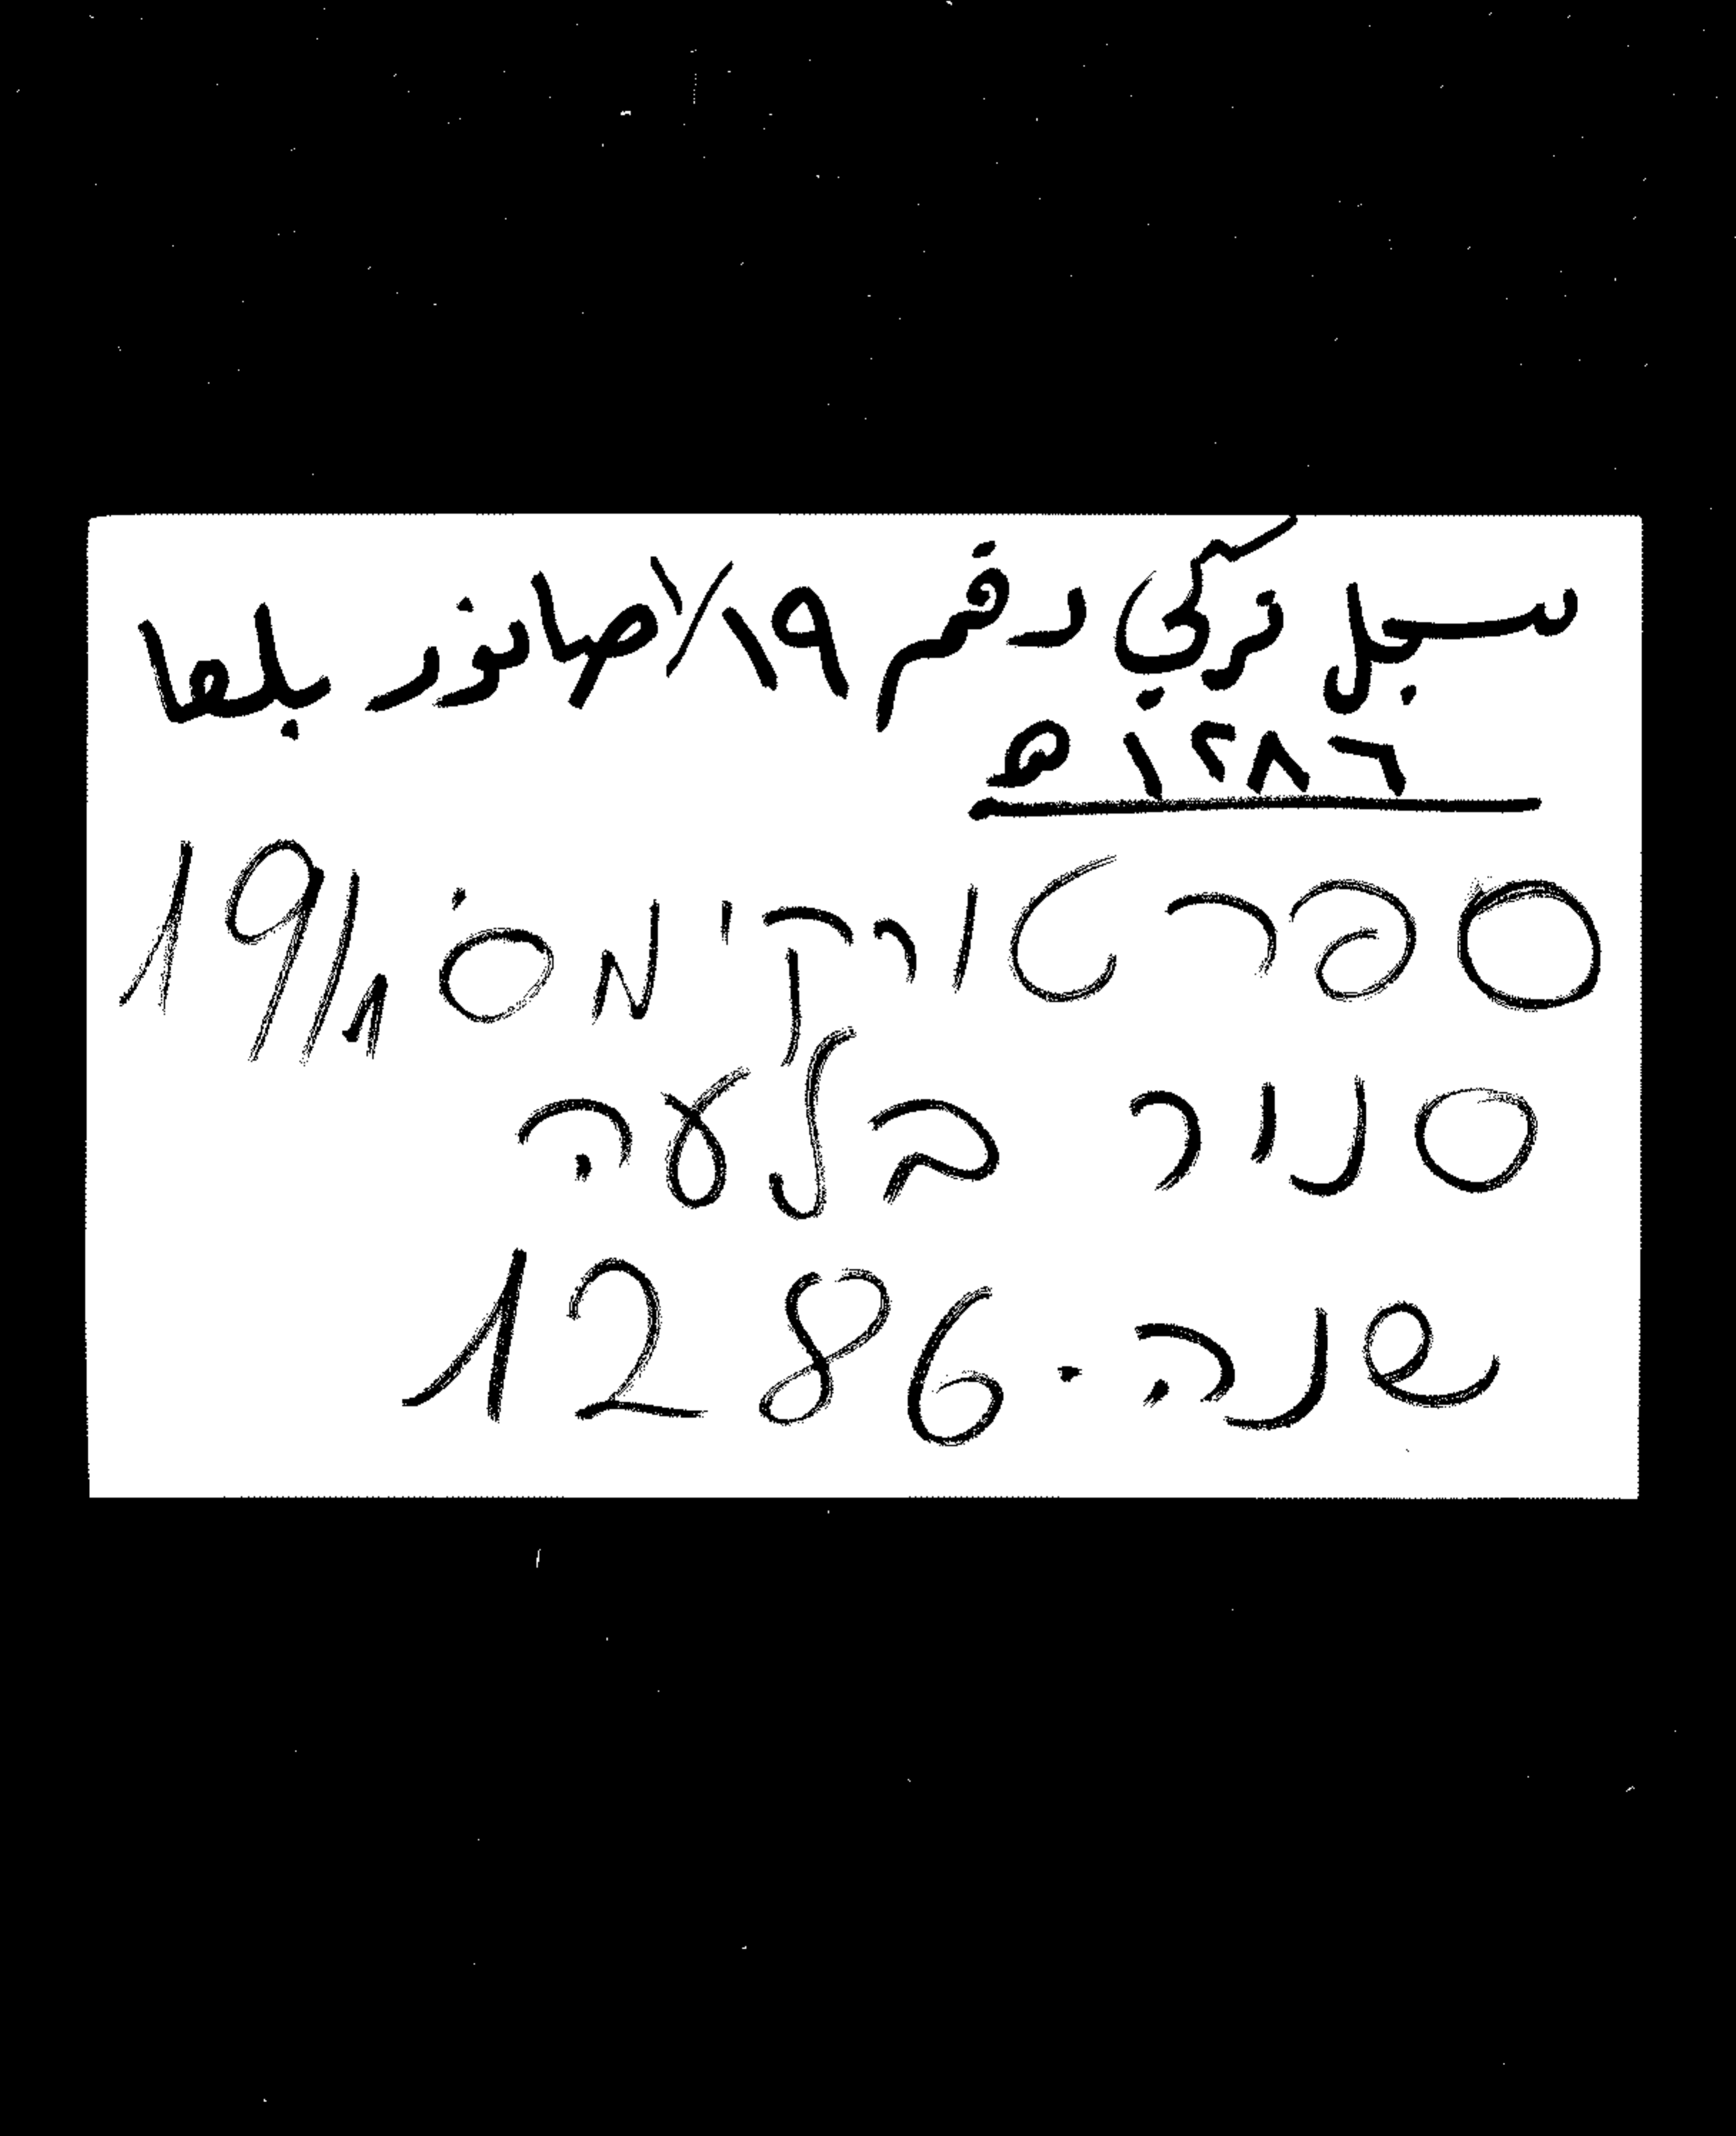 سجل تركي رقم ١٩/١ صانور بلعا
١٢٨٦ ه
ספר טורקי מס' 19/1
סניר בלעה
שנה - 1286